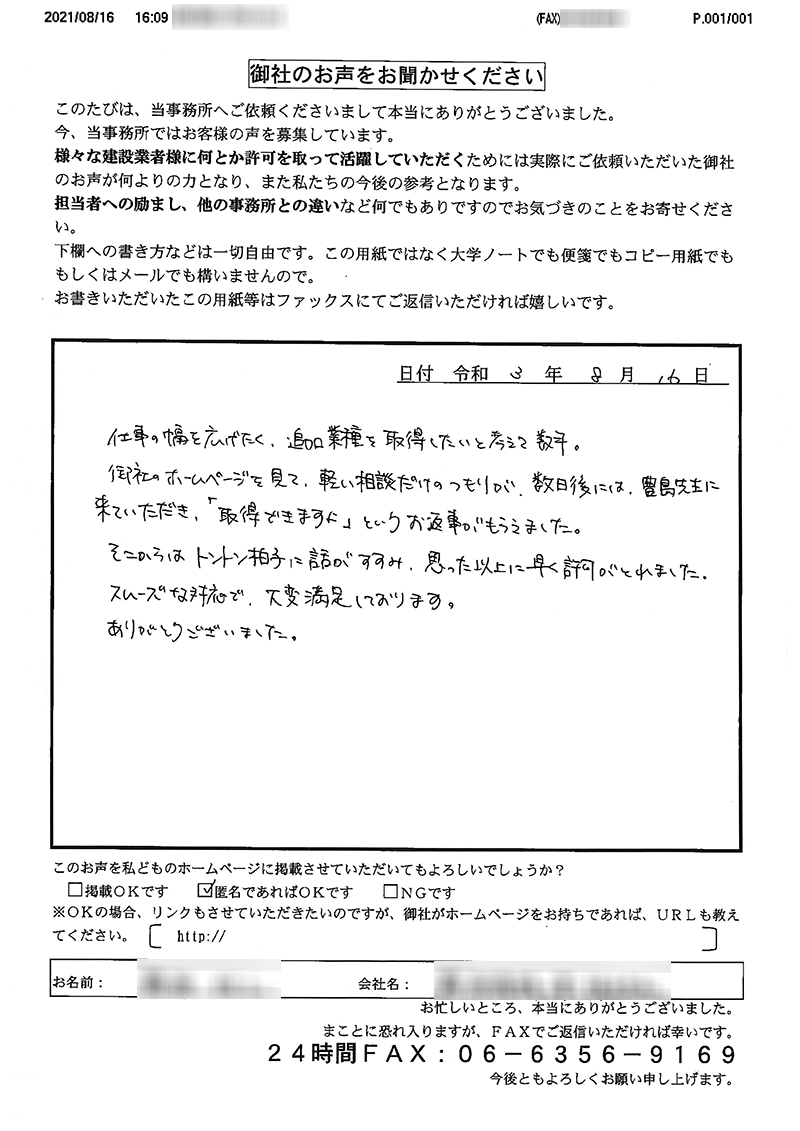 2021/08/16 16:09 (FAX) P.001/001
御社のお声をお聞かせください
このたびは、当事務所へご依頼くださいまして本当にありがとうございました。
今、当事務所ではお客様の声を募集しています。
様々な建設業者様に何とか許可を取って活躍していただくためには実際にご依頼いただいた御社
のお声が何よりの力となり、また私たちの今後の参考となります。
担当者への励まし、他の事務所との違いなど何でもありですのでお気づきのことをお寄せくださ
い。
下欄への書き方などは一切自由です。この用紙ではなく大学ノートでも便箋でもコピー用紙でも
もしくはメールでも構いませんので。
お書きいただいたこの用紙等はファックスにてご返信いただければ嬉しいです。
日付 令和 3 年 8 月 16 日
仕事の幅を広げたく、追加業種を取得したいと考えて数年。
御社のホームページを見て、軽い相談だけのつもりが、数日後には、豊島先生に
来ていただき、「取得できますよ」というお返事がもらえました。
そこからはトントン拍子に話がすすみ、思った以上に早く許可がとれました。
スムーズな対応で、大変満足しております。
ありがとうございました。
このお声を私どものホームページに掲載させていただいてもよろしいでしょうか？
□掲載ＯＫです ☑匿名であればＯＫです □ＮＧです
※ＯＫの場合、リンクもさせていただきたいのですが、御社がホームページをお持ちであれば、ＵＲＬも教え
てください。 〔 http:// 〕
お名前： 会社名：
お忙しいところ、本当にありがとうございました。
まことに恐れ入りますが、ＦＡＸでご返信いただければ幸いです。
２４時間ＦＡＸ：０６－６３５６－９１６９
今後ともよろしくお願い申し上げます。